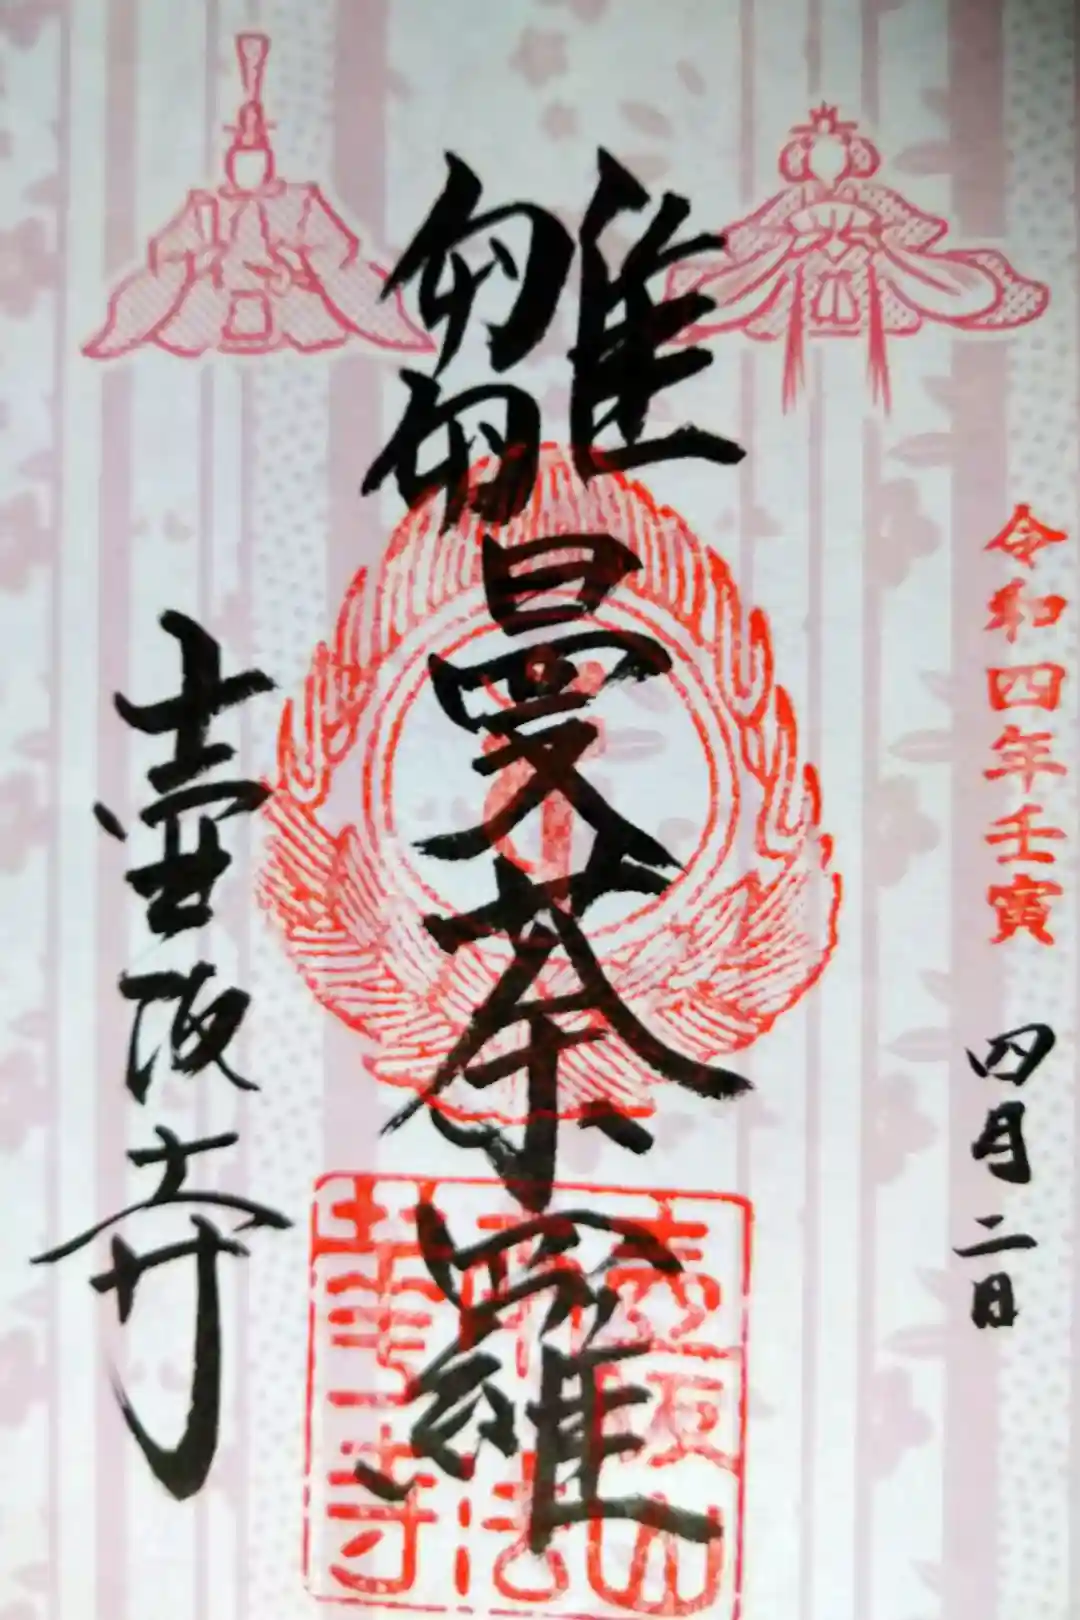 令和四年壬寅
四月二日
雛曼荼羅
壷阪寺
壺阪山
南法
華寺